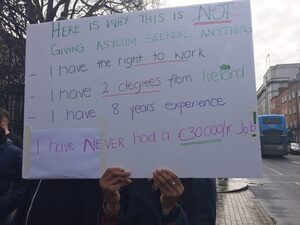 HERE IS WHY THIS IS NOT
GIVING ASYLUM SEEKERS ANYTHING
- I have the right to work
- I have 2 degrees from Ireland
- I have 8 years experience
I have NEVER had a €30000/yr job!